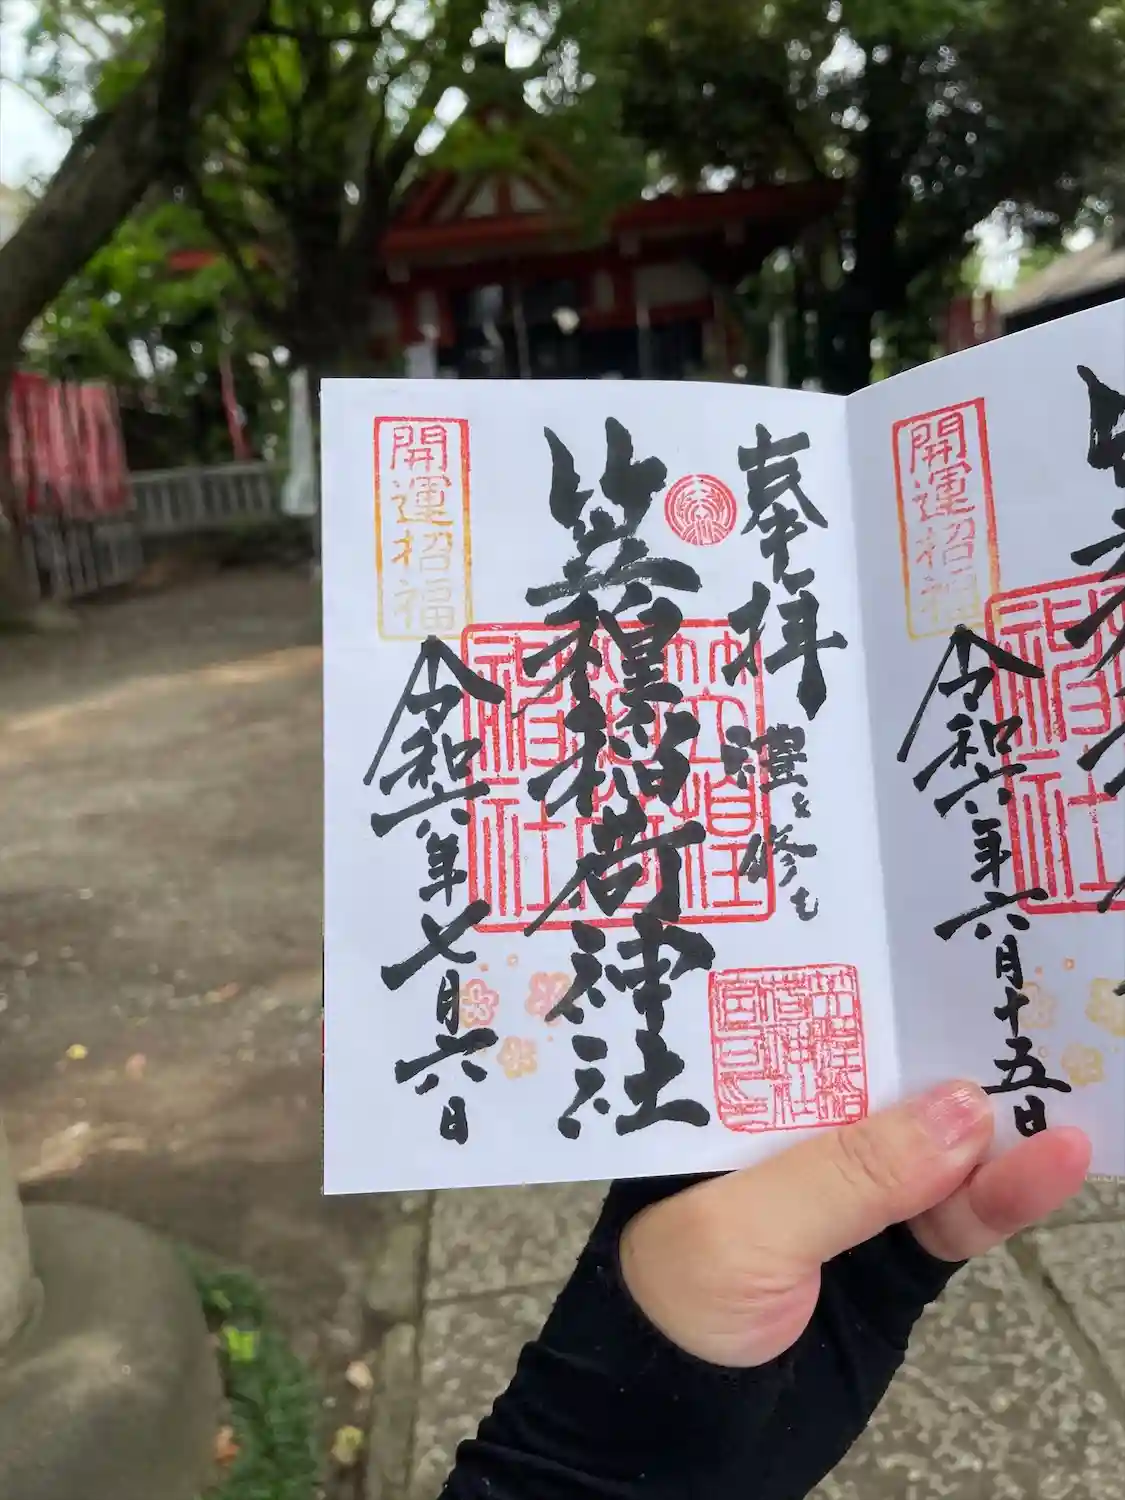 奉拝
謹と修も
笠䅣稲荷神社
開運招福
令和六年七月六日
開運招福
令和六年六月十五日